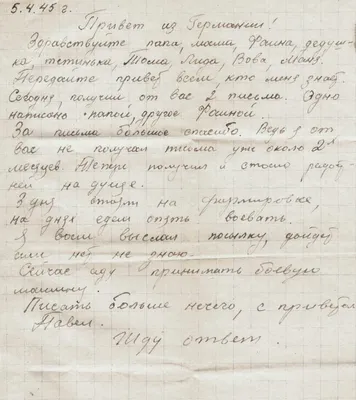 5.4.45 г.
Привет из Германии!
Здравствуйте папа, мама, Фаина, дедуш-
ка, тетинька, Тома, Лида, Вова, Маня.
Передайте привет всем, кто меня знает
Сегодня, получил от вас 2 письма. Одно
написано папой, другое Фаиной.
За письма большое спасибо. Ведь я от
вас не получал письма уже около 2х
месяцев. Теперь получил и стало радост-
ней на душе.
3 дня стоим на формировке,
на днях едем опять воевать.
Я вам выслал посылку, дойдет
или нет не знаю.
Сейчас иду принимать боевую
машину.
Писать больше нечего, с приветом
Павел.
Жду ответ.